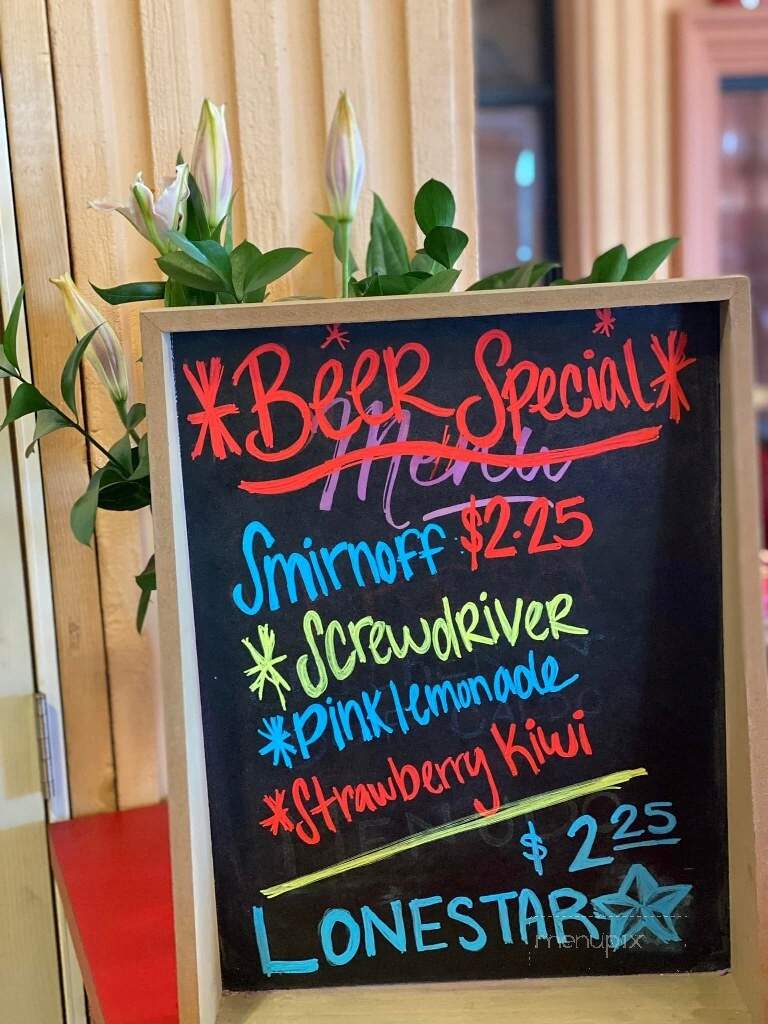 *Beer Special*
Menu
Smirnoff $2.25
*Screwdriver
*Pink lemonade
*Strawberry Kiwi
$2.25
LONESTAR
menupix